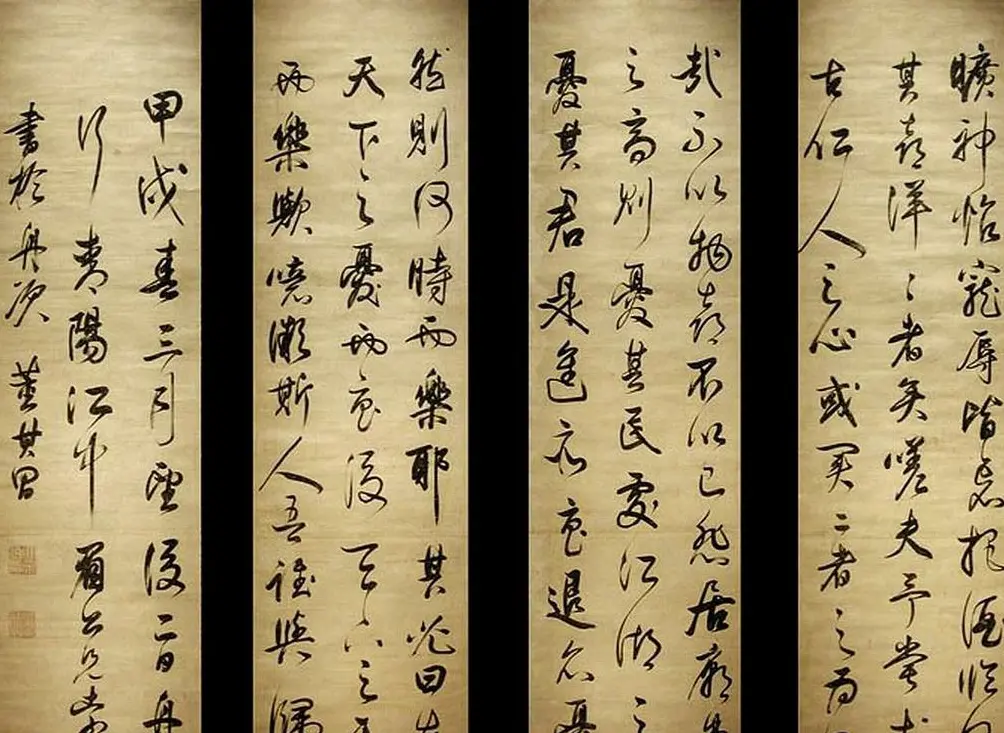 曠神怡寵辱皆忘把酒臨
其喜洋〻者矣嗟夫予嘗求
古仁人之心或異二者之為
哉不以物喜不以己悲居廟
之高則憂其民處江湖之
憂其君是進亦憂退亦憂
然則何時而樂耶其必曰先
天下之憂而憂後天下之
而樂歟噫微斯人吾誰與歸
甲戌春三月望後二日舟
行陽江中眉公兄
書於舟次 董其昌